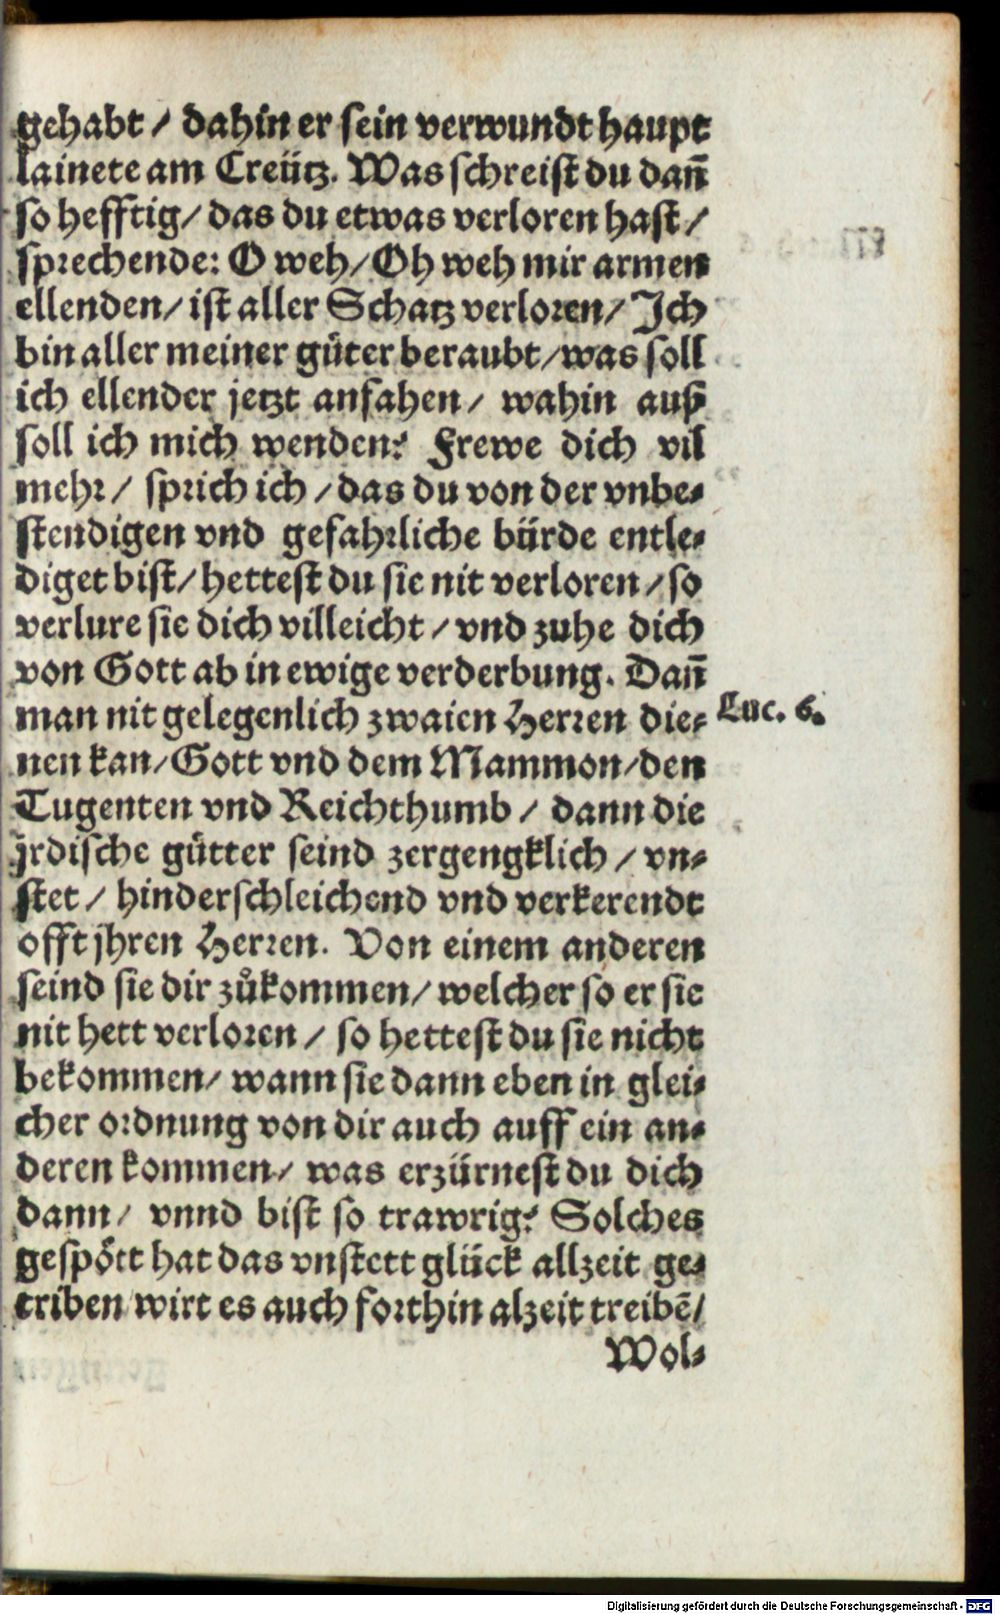 gehabt / dahin er sein verwundt haupt
lainete am Creütz. Was schreist du dañ
so hefftig / das du etwas verloren hast /
sprechende: O weh / Oh weh mir armen
ellenden / ist aller Schatz verloren / Ich
bin aller meiner güter beraubt / was soll
ich ellender jetzt anfahen / wahin auß
soll ich mich wenden? Frewe dich vil
mehr / sprich ich / das du von der vnbe-
stendigen vnd gefahrliche bürde entle-
diget bist / hettest du sie nit verloren / so
verlure sie dich villeicht / vnd zuhe dich
von Gott ab in ewige verderbung. Dañ
man nit gelegenlich zwaien Herren die-
Luc. 6.
nen kan / Gott vnd dem Mammon / den
Tugenten vnd Reichthumb / dann die
jrdische gütter seind zergengklich / vn-
stet / hinderschleichend vnd verkerendt
offt jhren Herren. Von einem anderen
seind sie dir zůkommen / welcher so er sie
nit hett verloren / so hettest du sie nicht
bekommen / wann sie dann eben in glei-
cher ordnung von dir auch auff ein an-
deren kommen / was erzürnest du dich
dann / vnnd bist so trawrig? Solches
gespött hat das vnstett glück allzeit ge-
triben wirt es auch forthin alzeit treibē /
Wol-
Digitalisierung gefördert durch die Deutsche Forschungsgemeinschaft - DFG